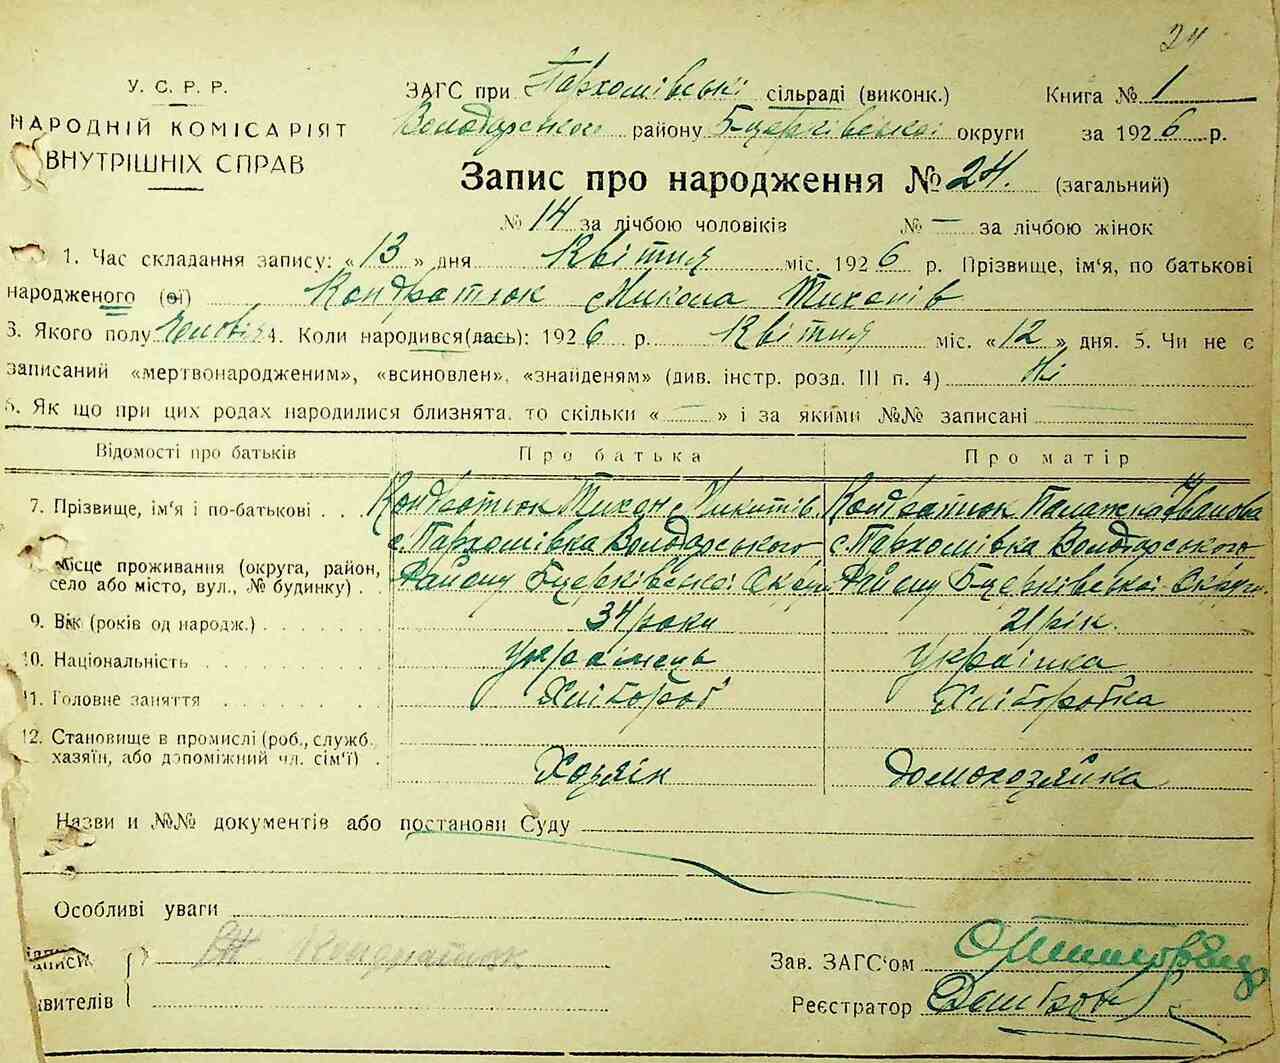 24
У. С. Р. Р.
НАРОДНІЙ КОМІСАРІЯТ
ВНУТРІШНІХ СПРАВ
ЗАГС при Пархомівській сільраді (виконк.) Книга № 1
Володарського району Б-церківської округи за 1926 р.
Запис про народження № 24. (загальний)
№ 14 за лічбою чоловіків № — за лічбою жінок
1. Час складання запису: «13» дня Квітня міс. 1926 р. Прізвище, ім'я, по батькові
народженого (ої) Кондратюк Микола Тиханів
3. Якого полу Чоловіч 4. Коли народився(лась): 1926 р. Квітня міс. «12» дня. 5. Чи не є
записаний «мертвонародженим», «всиновлен», «знайденям» (див. інстр. розд. III п. 4) Ні
6. Як що при цих родах народилися близнята, то скільки « — » і за якими №№ записані
Відомості про батьків Про батька Про матір
7. Прізвище, ім'я і по-батькові . . . Кондратюк Тихан Микитів. Кондратюк Палажка Іванова
с. Пархомівка Володарського с. Пархомівка Володарського
Місце проживання (округа, район, село або місто, вул., № будинку) . . Району Б церківської Округи Району Б-церківської Округи.
9. Вік (років од народж.) . . . . . . 34 роки 21 рік.
10. Національність . . . . . . . . Українець Українка
11. Головне заняття . . . . . . . Хлібороб Хліборобка
12. Становище в промислі (роб., служб.
хазяїн, або допоміжний чл. сім'ї) . Хозяїн домохозяйка
Назви и №№ документів або постанови Суду
Особливі уваги
Кондратюк
Зав. ЗАГС'ом
Реєстратор